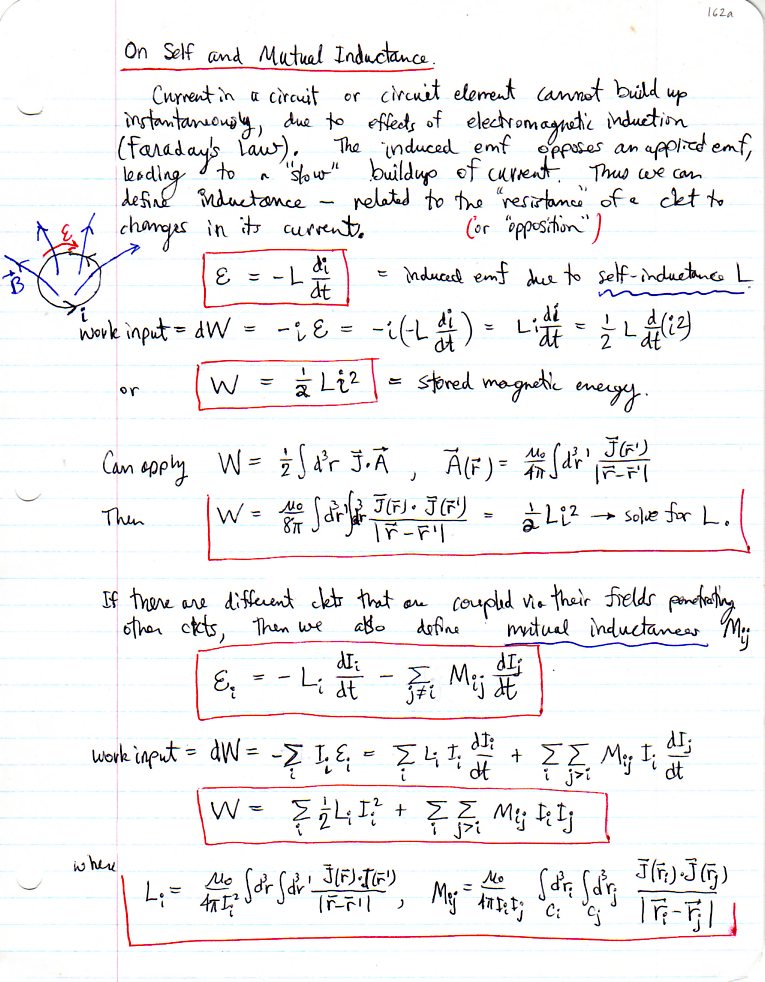 162a
On Self and Mutual Inductance.
Current in a circuit or circuit element cannot build up
instantaneously, due to effects of electromagnetic induction
(Faraday's Law). The induced emf opposes an applied emf,
leading to a "slow" buildup of current. Thus we can
define inductance – related to the "resistance" of a ckt to
changes in its current. (or "opposition")
ℰ
B⃗
i
ℰ = -L di/dt = induced emf due to self-inductance L
work input = dW = -iℰ = -i(-L di/dt) = Li di/dt = 1/2 L d/dt(i²)
or W = 1/2 Li² = stored magnetic energy.
Can apply W = 1/2 ∫d³r J⃗·A⃗ , A⃗(r⃗) = μ₀/4π ∫d³r' J⃗(r⃗')/|r⃗-r⃗'|
Then W = μ₀/8π ∫d³r' ∫d³r J⃗(r⃗)·J⃗(r⃗')/|r⃗-r⃗'| = 1/2 Li² → solve for L.
If there are different ckts that are coupled via their fields penetrating
other ckts, then we also define mutual inductances Mij
ℰi = -Li dIi/dt - Σj≠i Mij dIj/dt
work input = dW = -Σi Ii ℰi = Σi Li Ii dIi/dt + Σi Σj>i Mij Ii dIj/dt
W = Σi 1/2 Li Ii² + Σi Σj>i Mij Ii Ij
where
Li = μ₀/4πIi² ∫d³r ∫d³r' J⃗(r⃗)·J⃗(r⃗')/|r⃗-r⃗'| , Mij = μ₀/4πIiIj ∫Ci d³ri ∫Cj d³rj J⃗(r⃗i)·J⃗(r⃗j)/|r⃗i-r⃗j|